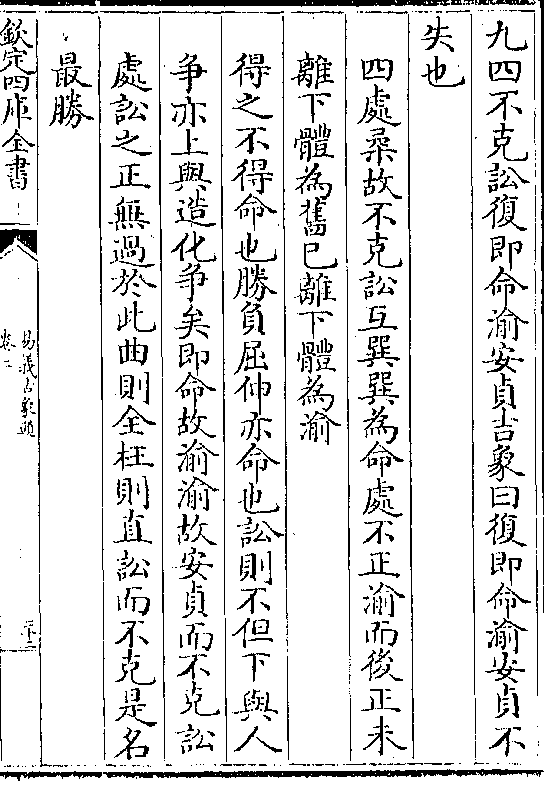 九四不克訟復即命渝安貞吉象曰復即命渝安貞不
失也
四處柔故不克訟互巽巽為命處不正渝而後正未
離下體為舊已離下體為渝
得之不得命也勝負屈伸亦命也訟則不但下與人
争亦上與造化争矣即命故渝渝故安貞而不克訟
處訟之正無過於此曲則全枉則直訟而不克是名
最勝
欽定四庫全書
易義古象通
卷二